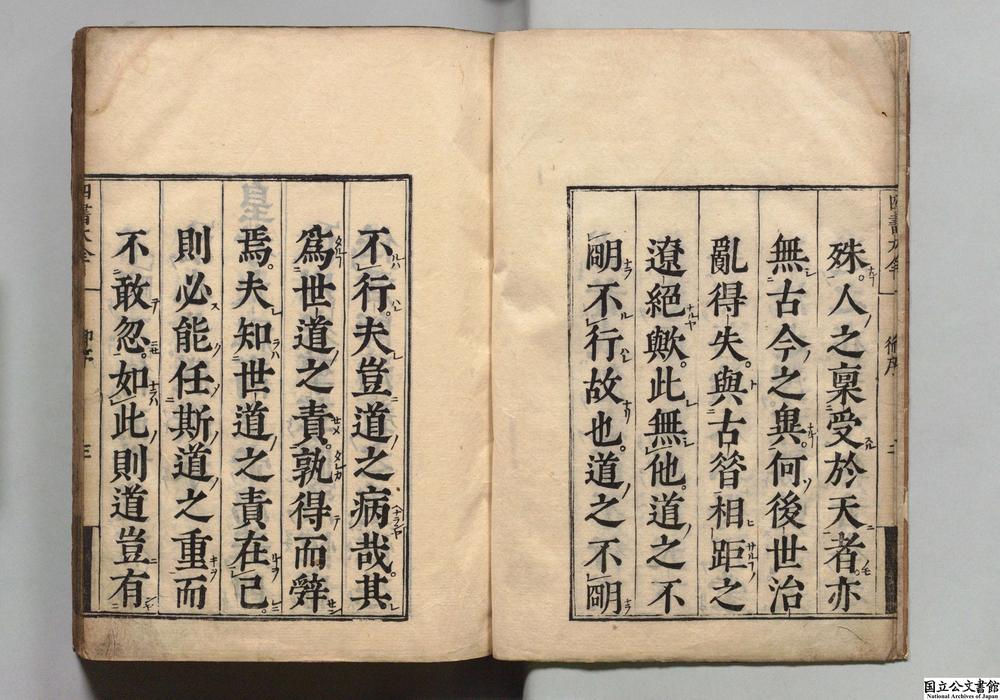 殊。人之稟受於天者亦
無古今之異。何後世治
亂得失。與古昔相距之
遼絕歟。此無他。道之不
明不行故也。道之不明
不行。夫豈道之病哉。其
爲世道之責。孰得而辭
焉。夫知世道之責在己。
則必能任斯道之重而
不敢忽。如此則道豈有
四書大全
御序
三
国立公文書館
National Archives of Japan